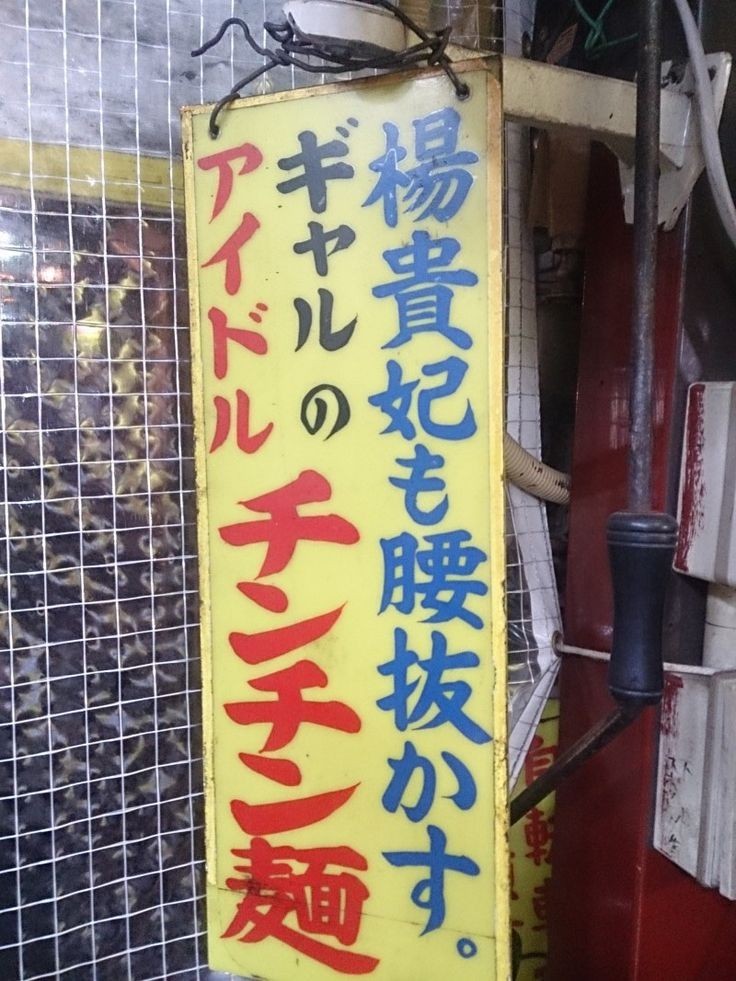 楊貴妃も腰抜かす。
ギャルの
アイドル
チンチン麺
自転車